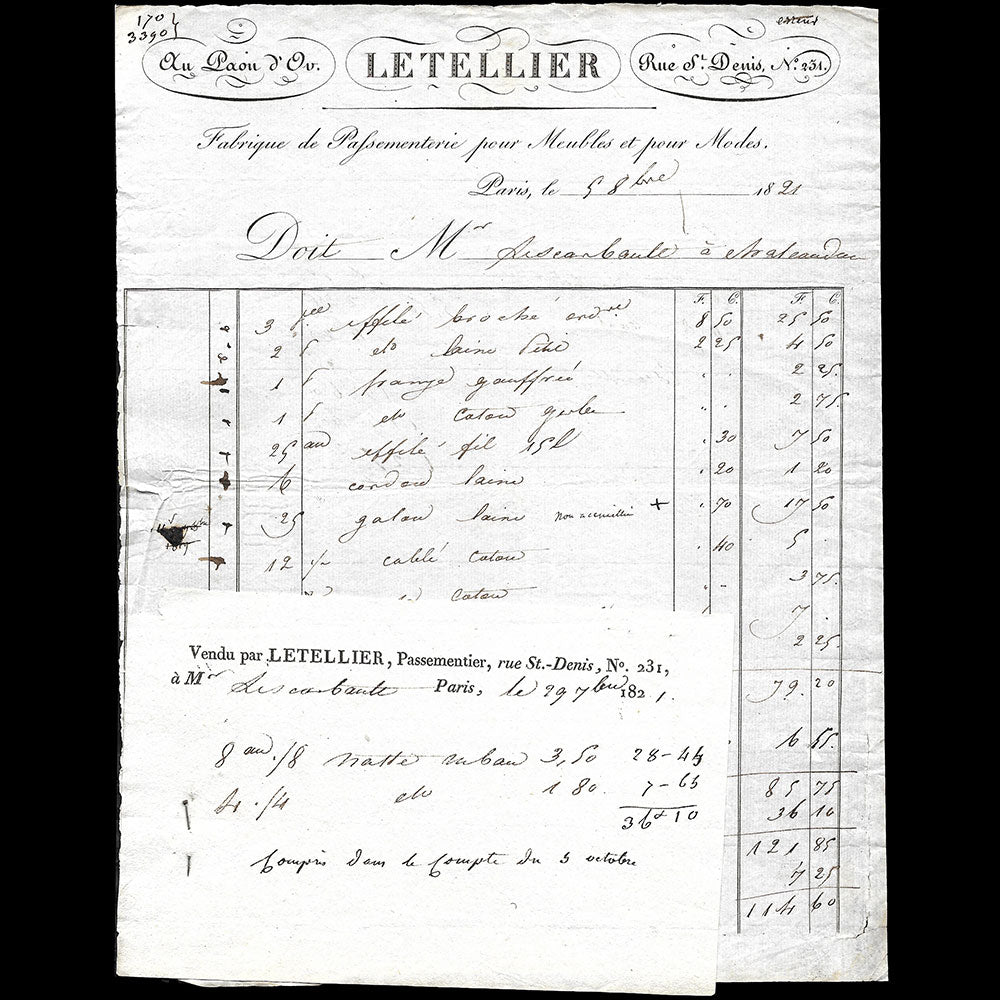 170
3390
erreur
Au Paon d'Or. LETELLIER Rue St. Denis, No. 231.
Fabrique de Passementerie pour Meubles et pour Modes.
Paris, le 5 8bre 1821
Doit Mr Lescarbault à Chateaudun
F. C. F. C.
3 pces effilé broché ordre 8 50 25 50
2 do laine 2 25 4 50
1 frange gauffrée 2 25
1 do coton 2 75
25 au effilé fil 15l 30 7 50
6 cordon laine 20 1 20
25 galon laine non accueillie + 70 17 50
12 cablé coton 40 5
coton 3 75
7
2 25
79 20
6 55
85 75
36 10
121 85
7 25
114 60
Vendu par LETELLIER, Passementier, rue St.-Denis, No. 231,
à Mr Lescarbault Paris, le 29 7bre 1821.
8 au 1/8 natte ruban 3,50 28-44
4 1/4 do 1 80 7-65
36 10
Compris dans le Compte du 5 octobre